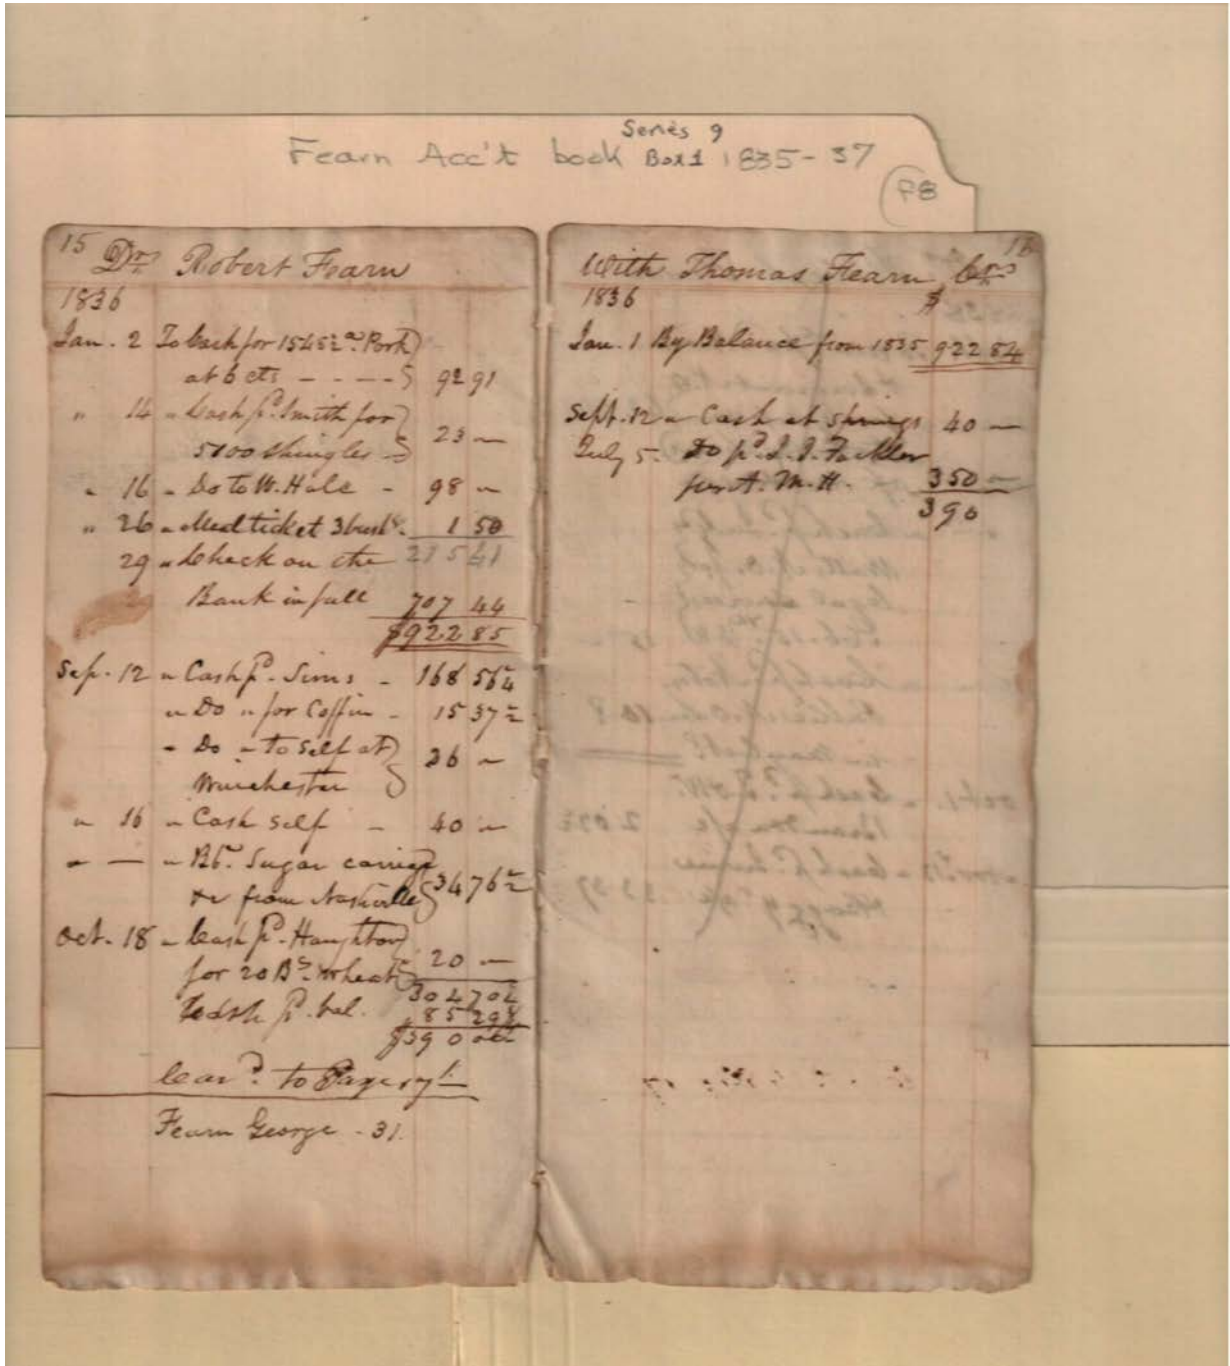 Series 9
Fearn Acc't book Box 1 1835-37
F8
15 Drs Robert Fearn
1836
Jan. 2 To Cash for 1545 2 Pork
at 6 cts - - - - 92 91
" 14 " Cash pd. Smith for
5100 Shingles 23 "
" 16 " Do to W. Hale - 98 "
" 26 " Meal ticket 3 bush. 1 50
215 41
29 " Check on the
Bank in full 707 44
$922 85
Sep. 12 " Cash pd. Sims - 168 56¼
" Do " for Coffin - 15 37½
" Do " to Self at
Winchester 26 "
" 16 " Cash self - 40 "
" — " Bbl. Sugar carriage
&c from Nashville 34 76½
Oct. 18 " Cash pd. Haughton
for 20 Bs. Wheat 20 "
304 70¼
To Cash pd. bal. 85 29
$390
Card. to Page 17
Fearn George - 31.
With Thomas Fearn Crs
1836 $
Jan. 1 By Balance from 1835. 922 84
Sept. 12 " Cash at Springs 40 —
July 5. Do pd. J. J. Fackler
per A. M. H. 350 —
390